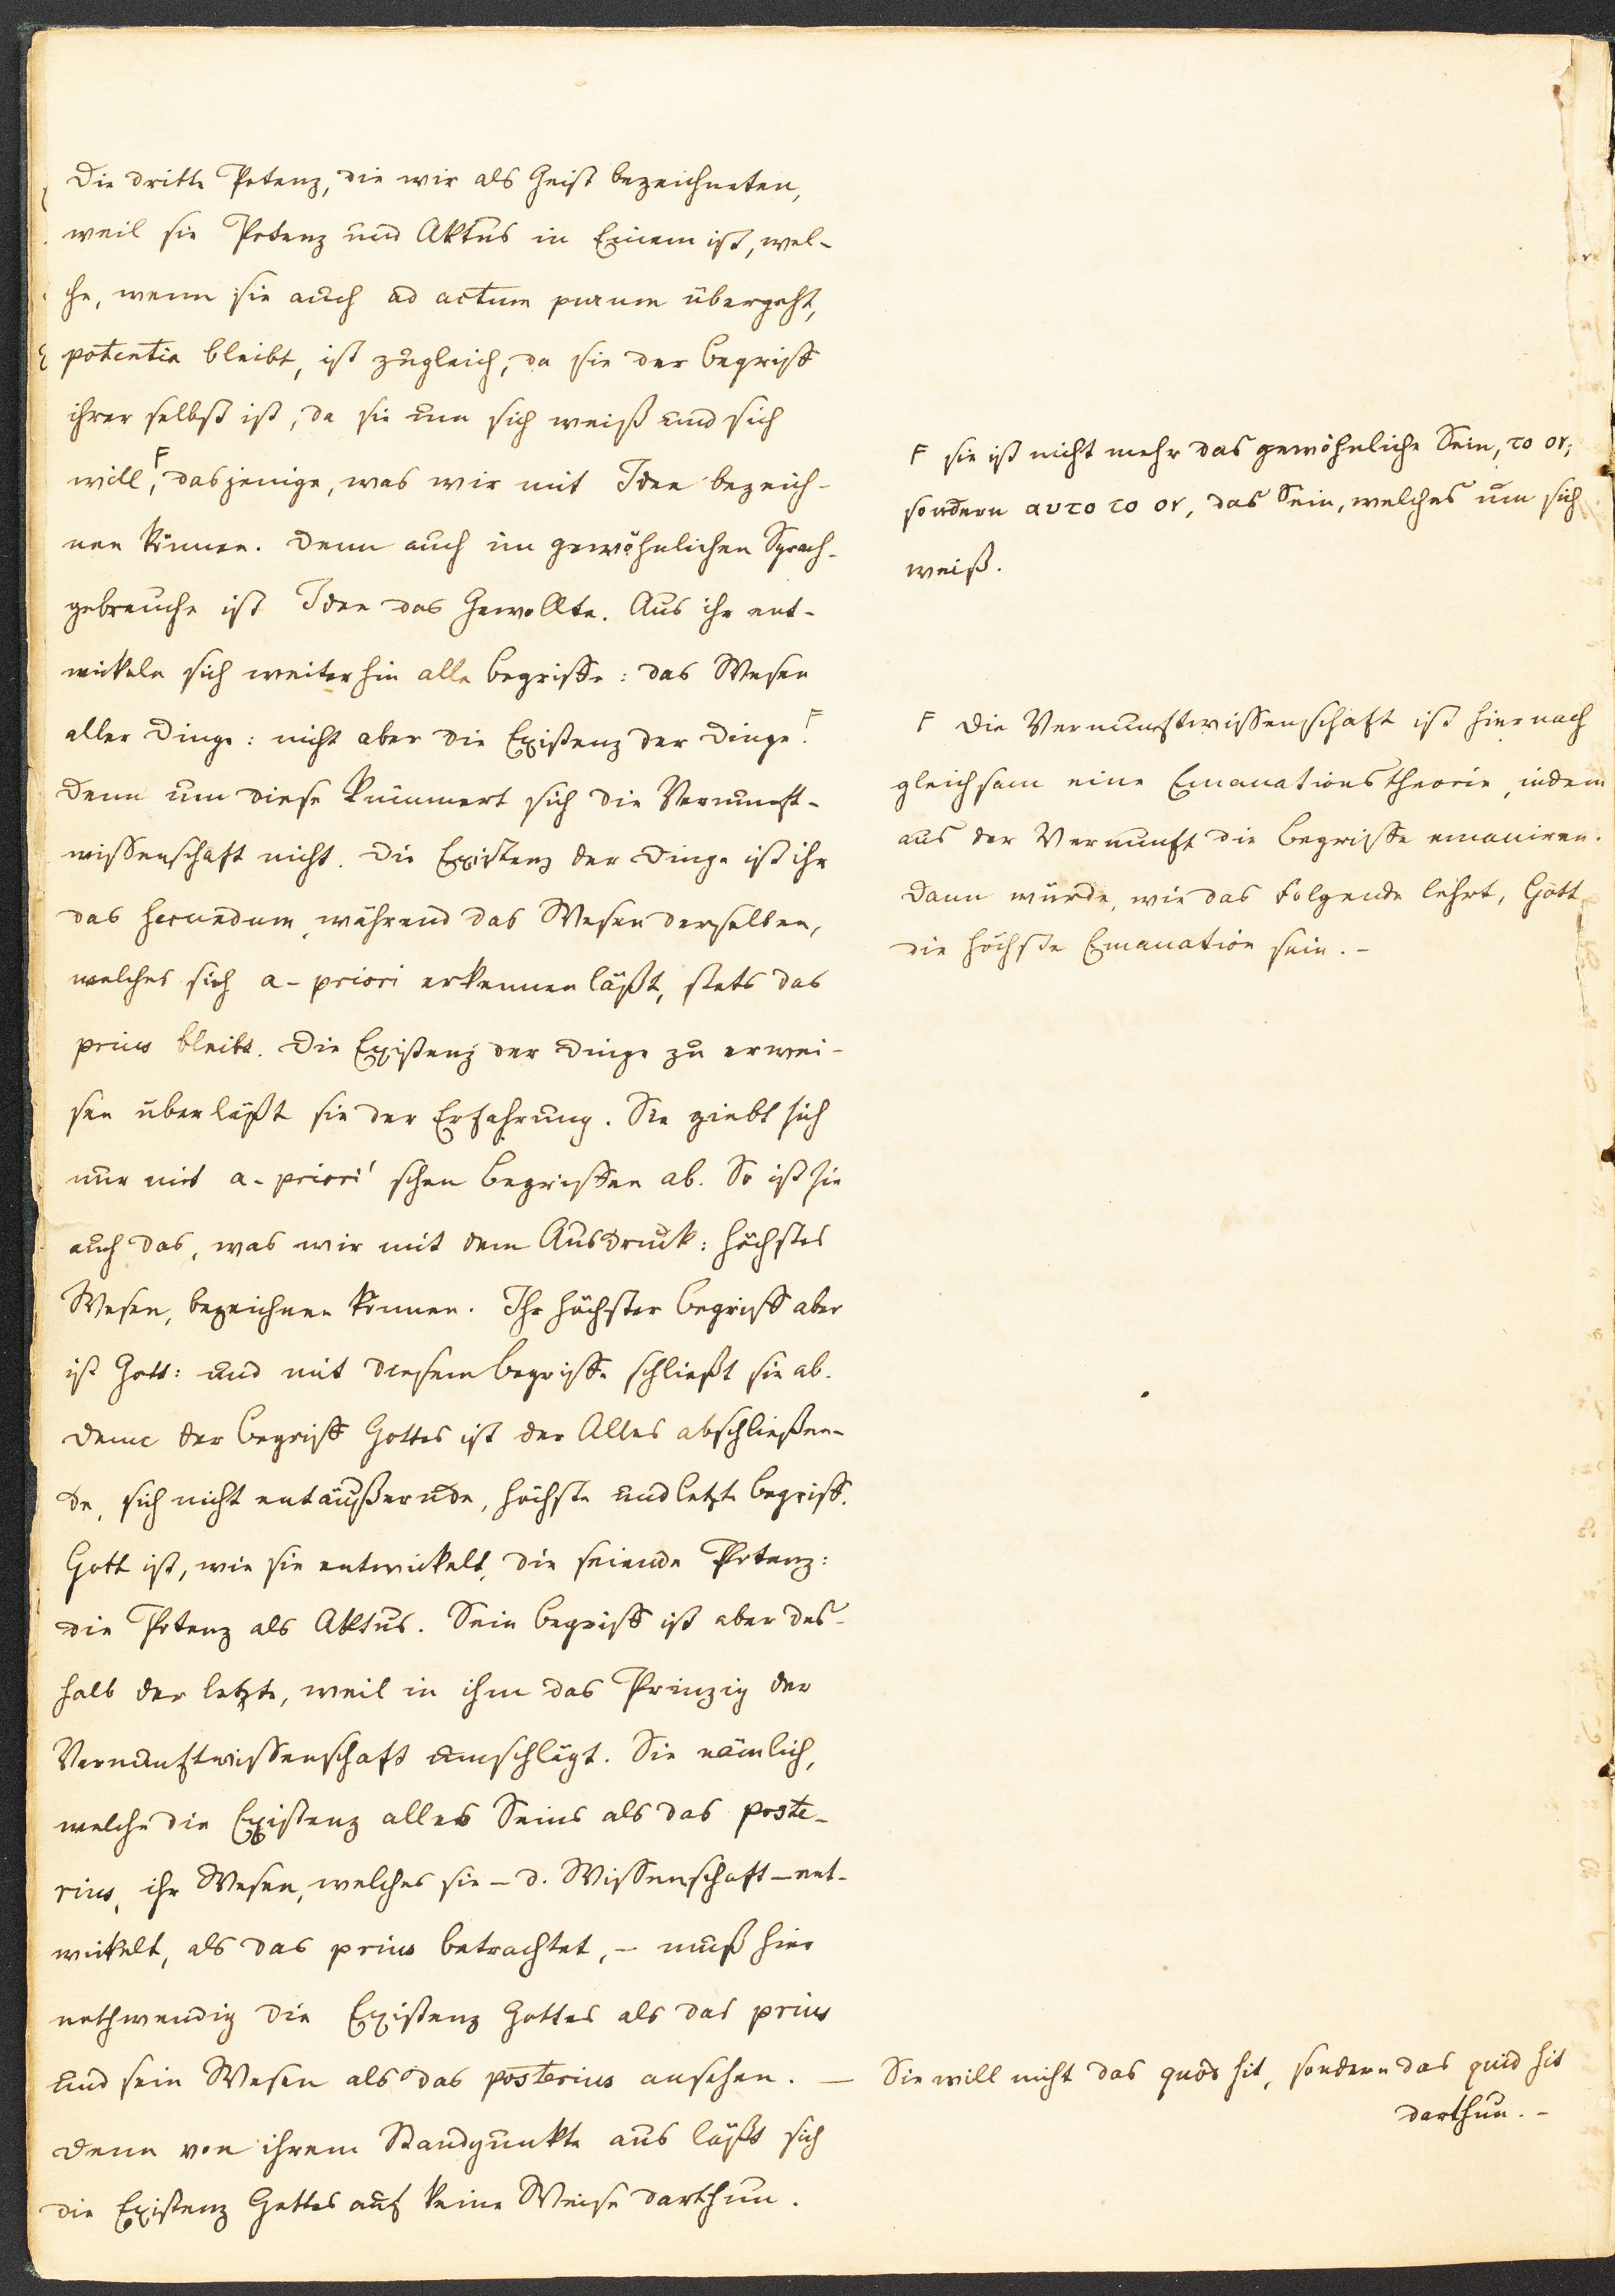 Die dritte Potenz, die wir als Geist bezeichneten,
weil sie Potenz und Aktus in Einem ist, wel-
che, wenn sie auch ad actum purum übergeht,
potentia bleibt, ist zugleich, da sie der Begriff
ihrer selbst ist, da sie um sich weiß und sich
will, F dasjenige, was wir mit Idee bezeich-
nen können. Denn auch im gewöhnlichen Sprach-
gebrauche ist Idee das Gewollte. Aus ihr ent-
wickeln sich weiterhin alle Begriffe: das Wesen
aller Dinge: nicht aber die Existenz der Dinge. F
Denn um diese kümmert sich die Vernunft-
wissenschaft nicht. Die Existenz der Dinge ist ihr
das secundum, während das Wesen derselben,
welches sich a-priori erkennen läßt, stets das
prius bleibt. Die Existenz der Dinge zu erwei-
sen überläßt sie der Erfahrung. Sie giebt sich
nur mit a-priori'schen Begriffen ab. So ist sie
auch das, was wir mit dem Ausdruck: höchstes
Wesen, bezeichnen können. Ihr höchster Begriff aber
ist Gott: und mit diesem Begriffe schließt sie ab.
Denn der Begriff Gottes ist der Alles abschließen-
de, sich nicht entäußernde, höchste und letzte Begriff.
Gott ist, wie sie entwickelt, die seiende Potenz:
die Potenz als Aktus. Sein Begriff ist aber des-
halb der letzte, weil in ihm das Prinzip der
Vernunftwissenschaft umschlägt. Sie nämlich,
welche die Existenz alles Seins als das poste-
rius, ihr Wesen, welches sie – d. Wissenschaft – ent-
wickelt, als das prius betrachtet, – muß hier
nothwendig die Existenz Gottes als das prius
und sein Wesen als das posterius ansehen. –
Denn von ihrem Standpunkte aus läßt sich
die Existenz Gottes auf keine Weise darthun.
F sie ist nicht mehr das gewöhnliche Sein, το ον;
sondern αυτο το ον, das Sein, welches um sich
weiß.
F Die Vernunftwissenschaft ist hiernach
gleichsam eine Emanationstheorie, indem
aus der Vernunft die Begriffe emaniren.
Dann würde, wie das Folgende lehrt, Gott
die höchste Emanation sein. –
Sie will nicht das quod sit, sondern das quid sit
darthun. –